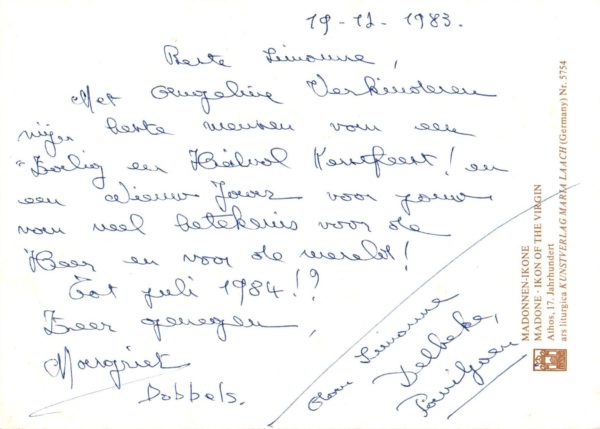 19-12-1983.
Beste Simonne,
Met Angeline Verkinderen
mijn beste wensen voor een
"Zalig en Hálvol Kerstfeest! en
een Nieuw Jaar voor jouw
van veel betekenis voor de
Heer en voor de wereld!
Tot juli 1984!?
Zeer genegen,
Margriet
Dobbels.
Simonne
Delbeke,
MADONNEN-IKONE
MADONE - IKON OF THE VIRGIN
Athos, 17. Jahrhundert
ars liturgica KUNSTVERLAG MARIA LAACH (Germany) Nr. 5754